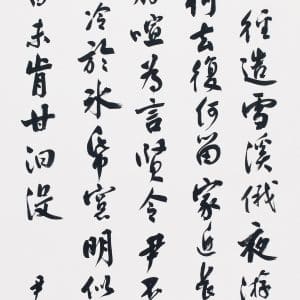 徑造雪溪俄夜游
何去復何留家近長
喧為言賢令尹不
冷於冰帋窓明似
未肯甘汩沒 尹